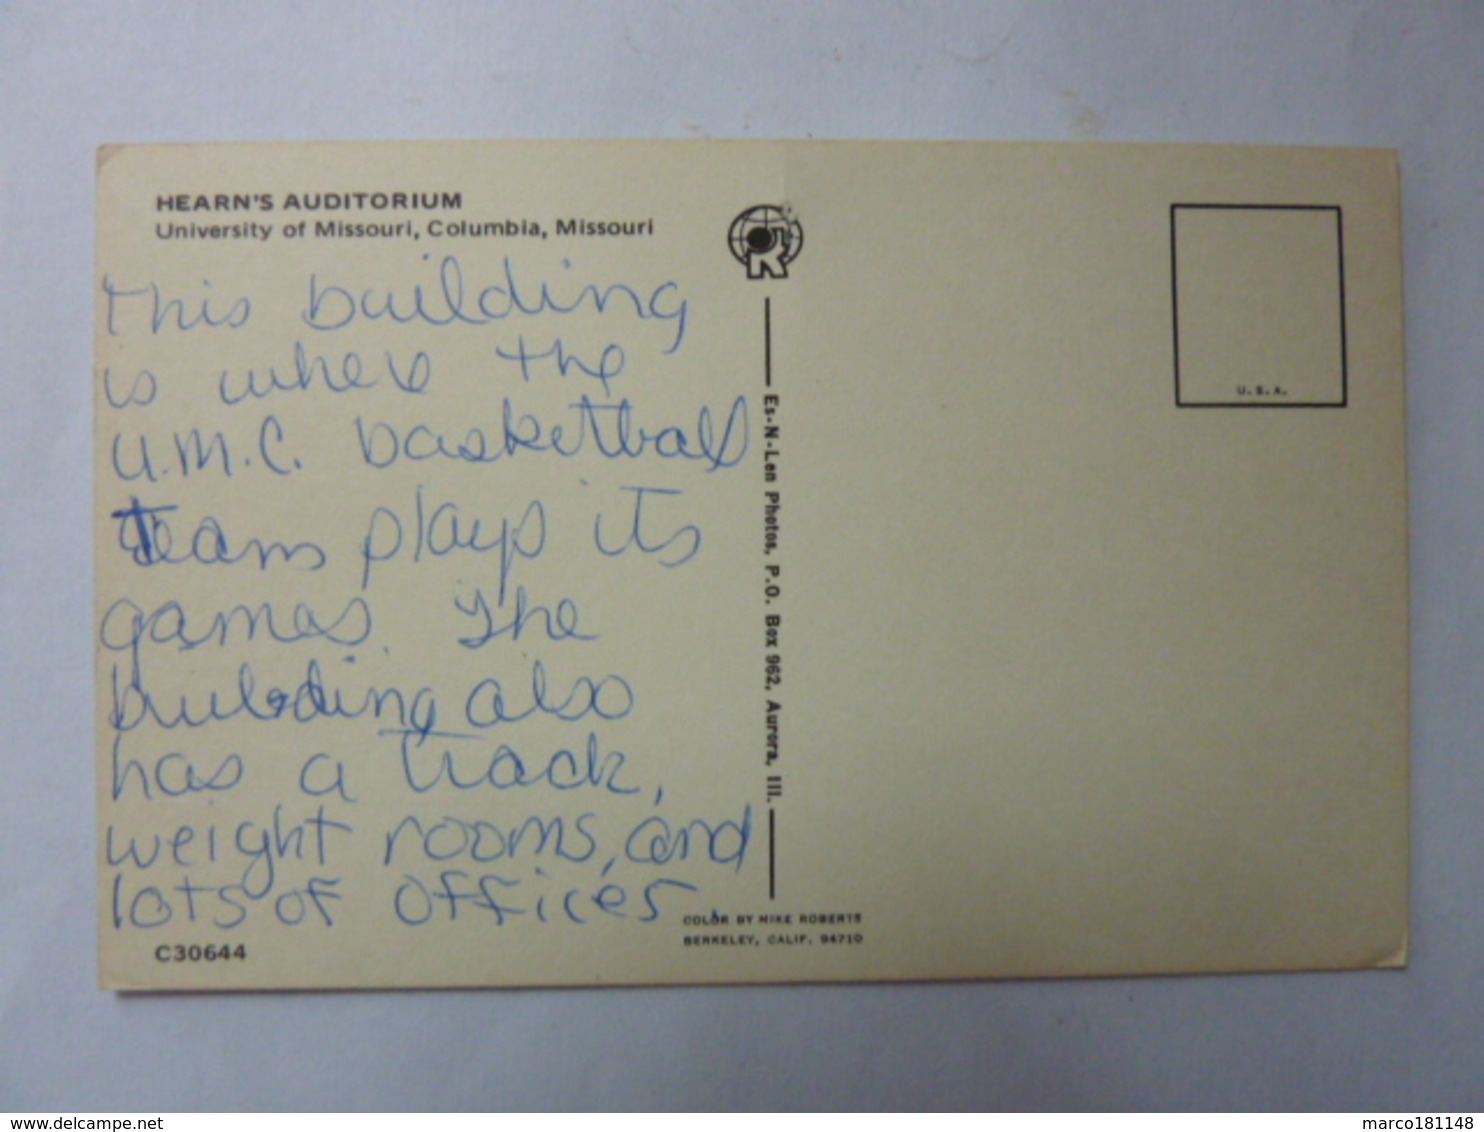 HEARN'S AUDITORIUM
University of Missouri, Columbia, Missouri
This building
is where the
U.M.C. basketball
team plays its
games. The
building also
has a track,
weight rooms, and
lots of offices
C30644
R
Es-N-Len Photos, P.O. Box 962, Aurora, Ill.
COLOR BY MIKE ROBERTS
BERKELEY, CALIF. 94710
U.S.A.
delcampe.net
marco181148